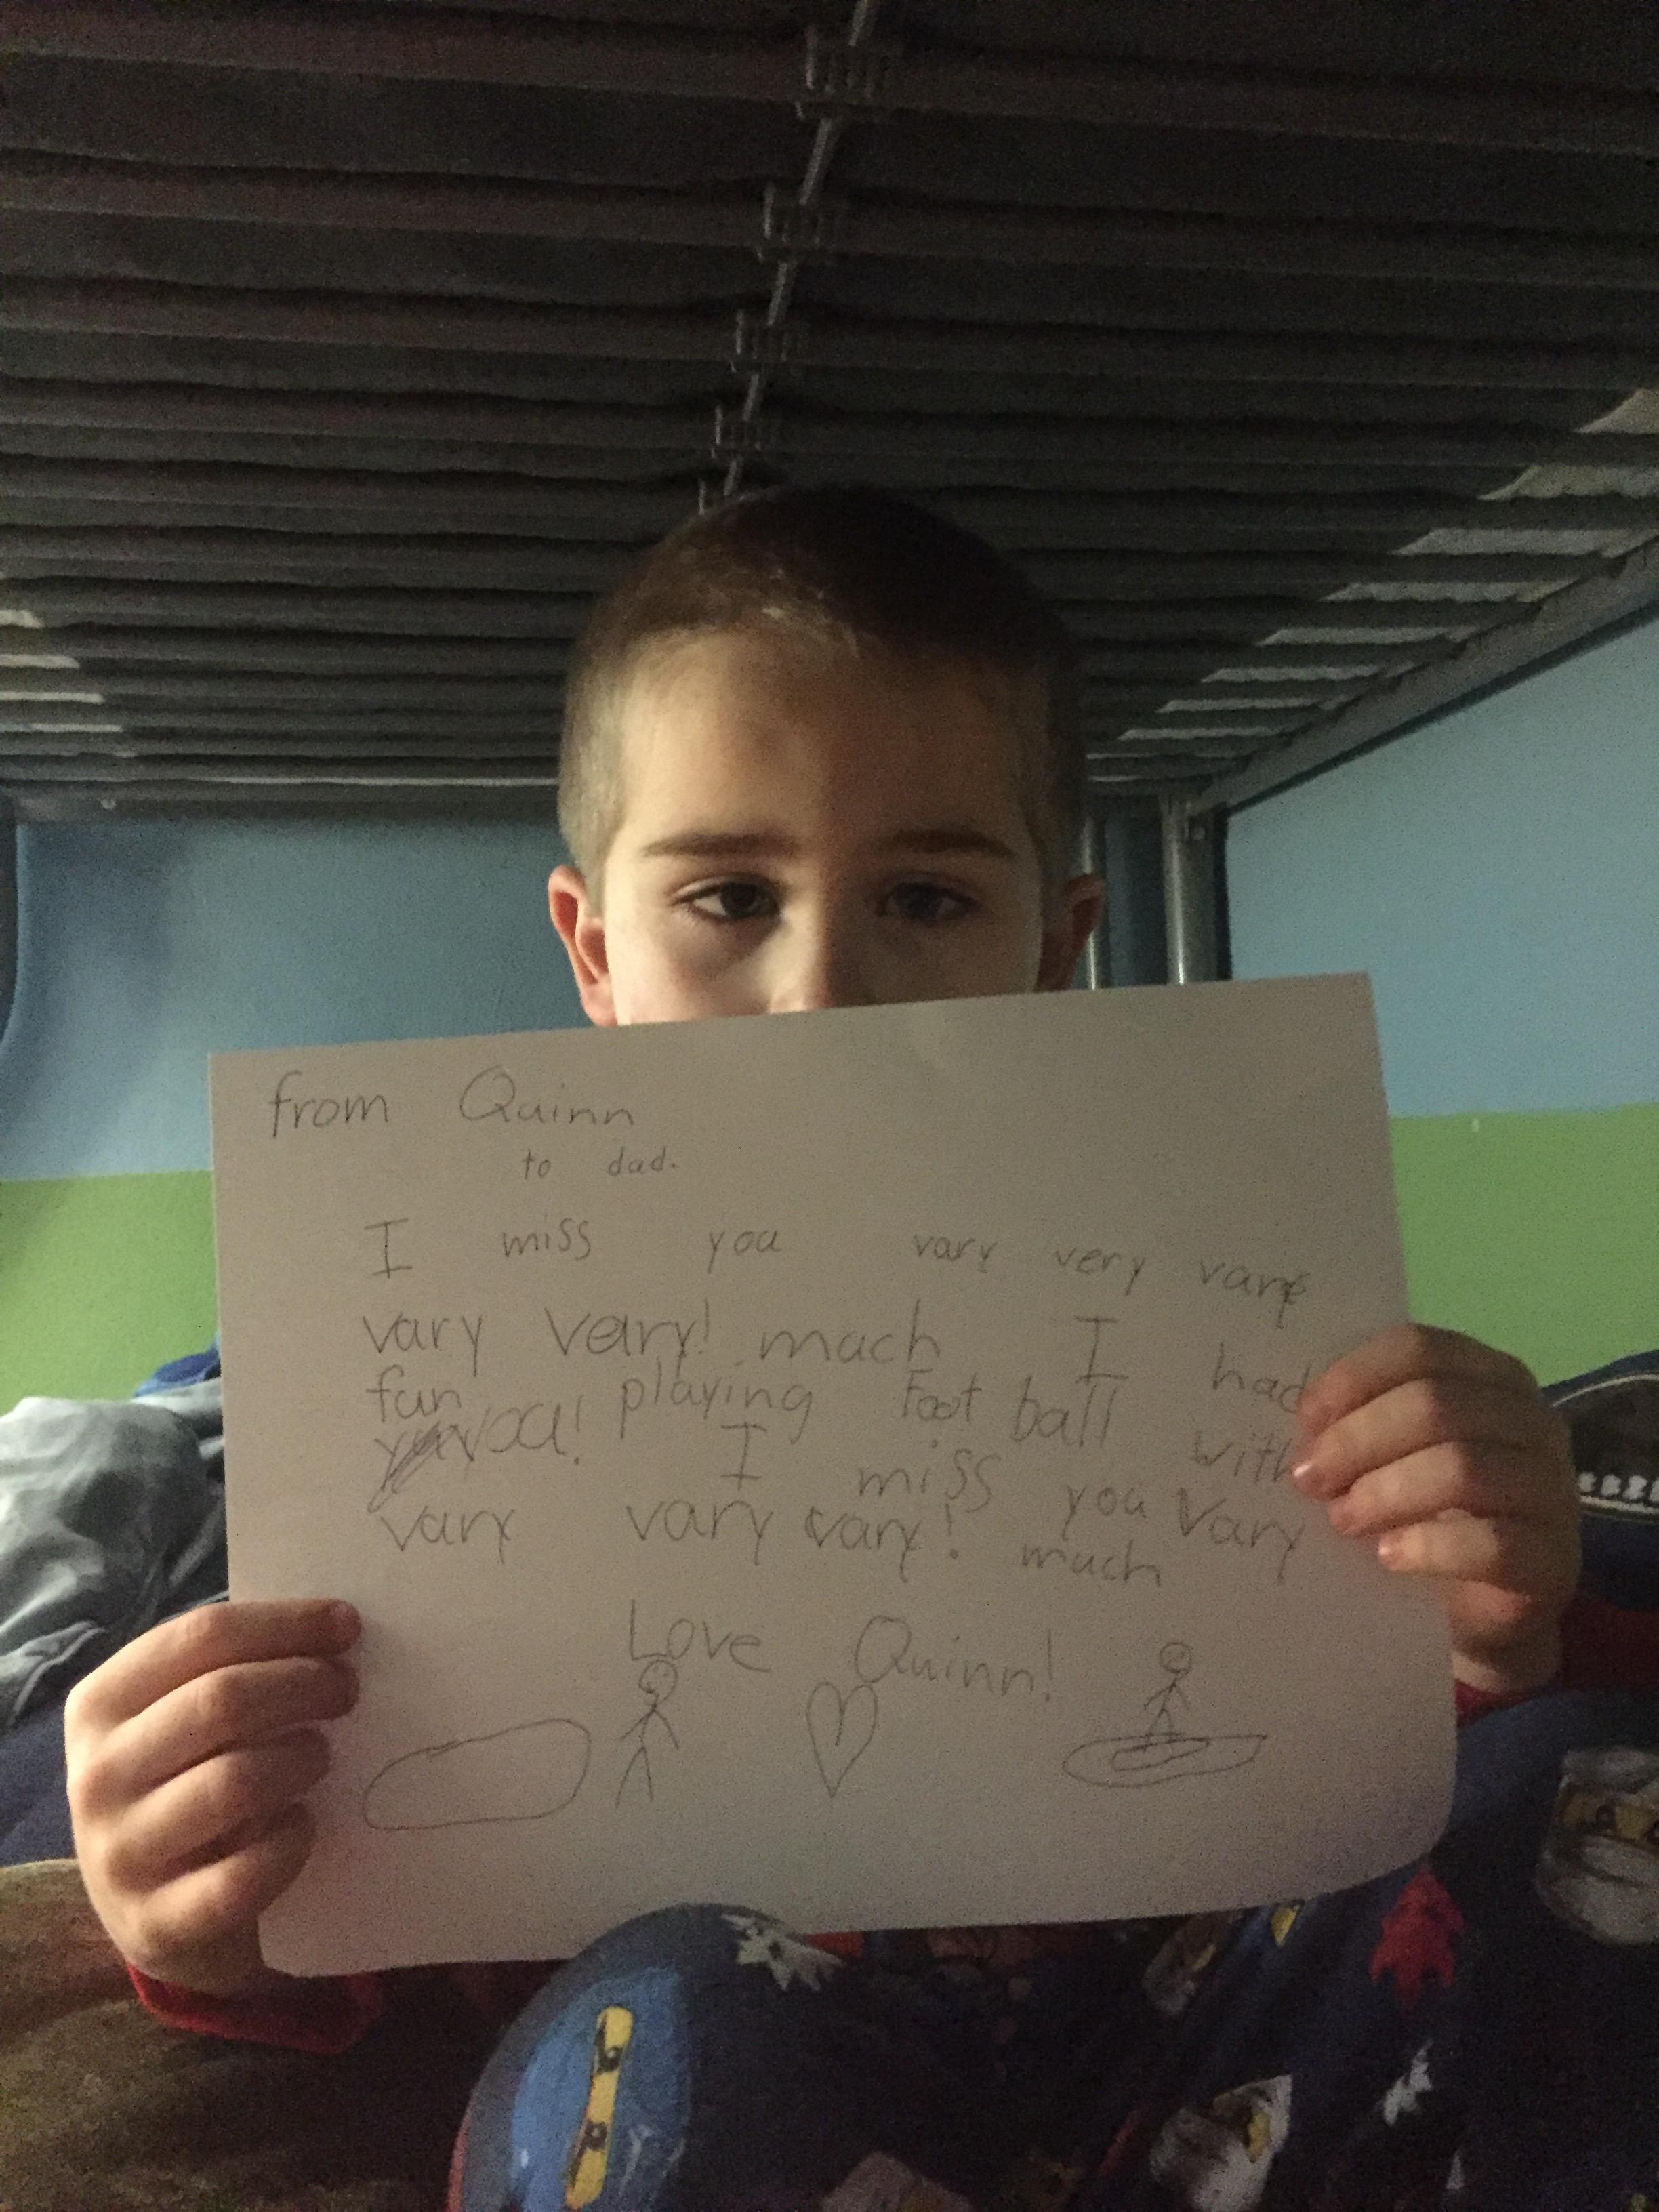 from Quinn
to dad.
I miss you vary very vary
vary very! mach I had
fun playing foot ball with
you! I miss you vary
vary vary vary! much
Love Quinn!